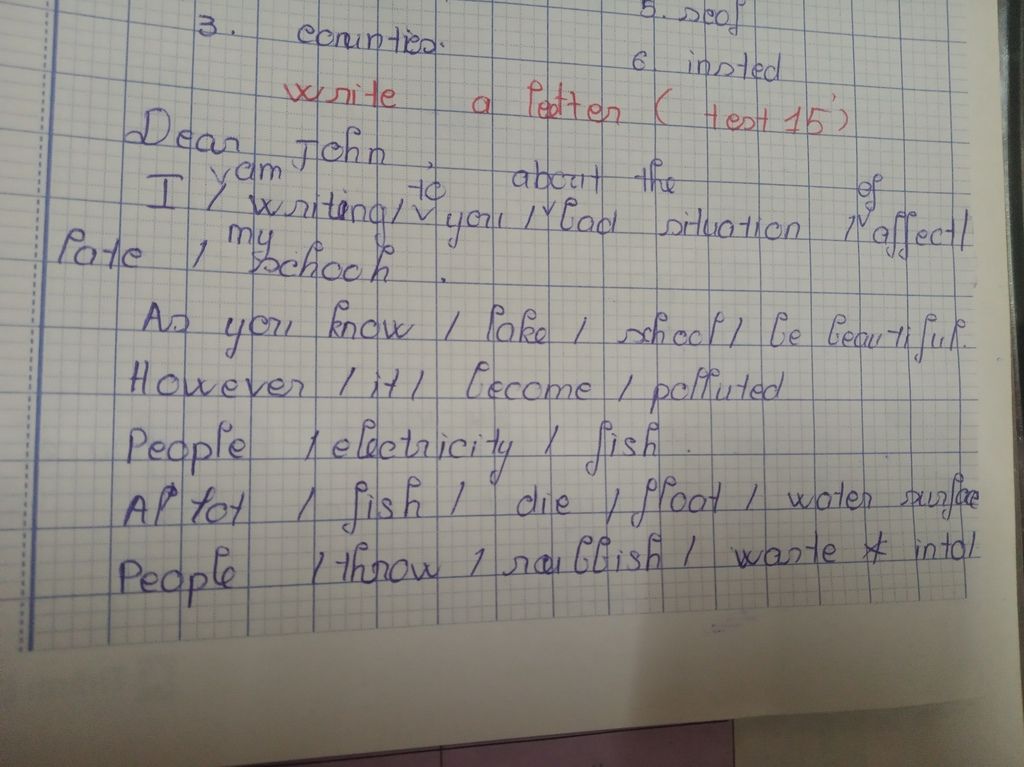 3. countries. 5. seof
6 insted
write a letter ( test 15')
Dear John ,
am to about the of
I / writing / you / bad situation / affect /
my
late / school .
As you know / lake / school / be beautiful.
However / it / become / polluted
People / electricity / fish .
A lot / fish / die / float / water surface
People / throw / rubbish / waste * into /